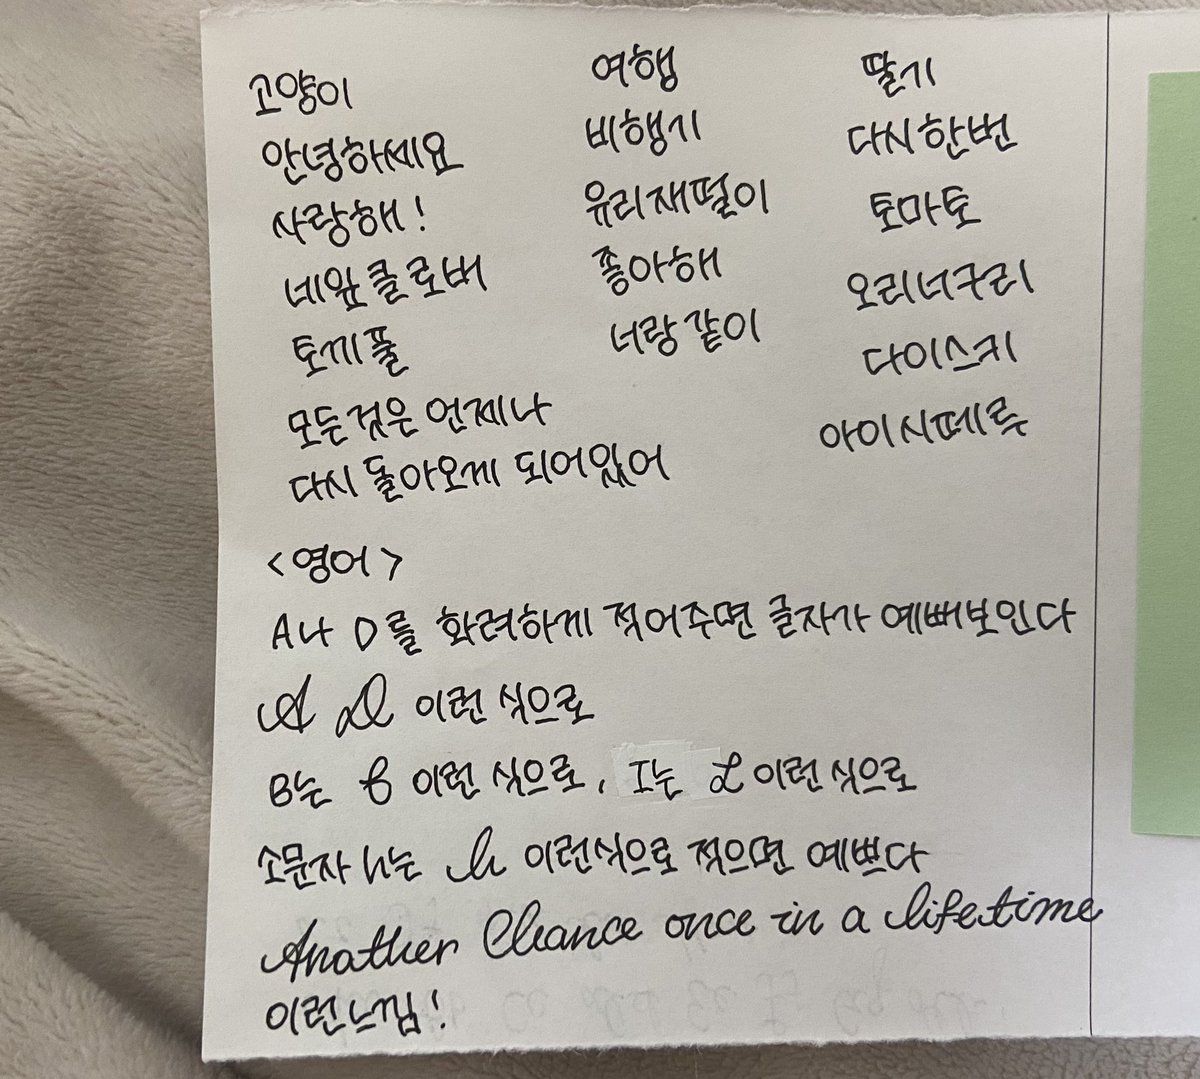 고양이
안녕하세요
사랑해!
네잎클로버
토끼풀
모든것은 언제나
다시 돌아오게 되어있어
여행
비행기
유리재떨이
좋아해
너랑 같이
딸기
다시한번
토마토
오리너구리
다이스키
아이시떼루
<영어>
A나 D를 화려하게 적어주면 글자가 예뻐보인다
A D 이런 식으로
B는 B 이런 식으로, I는 I 이런 식으로
소문자 h는 h 이런식으로 적으면 예쁘다
Another Chance once in a lifetime
이런느낌!